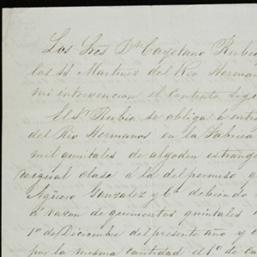 Los Sres Dn Cayetano Rubio
los SS Martinez del Rio Herman
mi intervencion el Contrato sigu
El Sr Rubio se obliga á entre
del Rio Hermanos en la Fabrica
mil quintales de algodon estrang
igual clase a la del permiso
Agüero Gonzalez y Ca debiendo
á razon de quinientos quintales
1o de Diciembre del presente año y
por la misma cantidad el 1o de ca